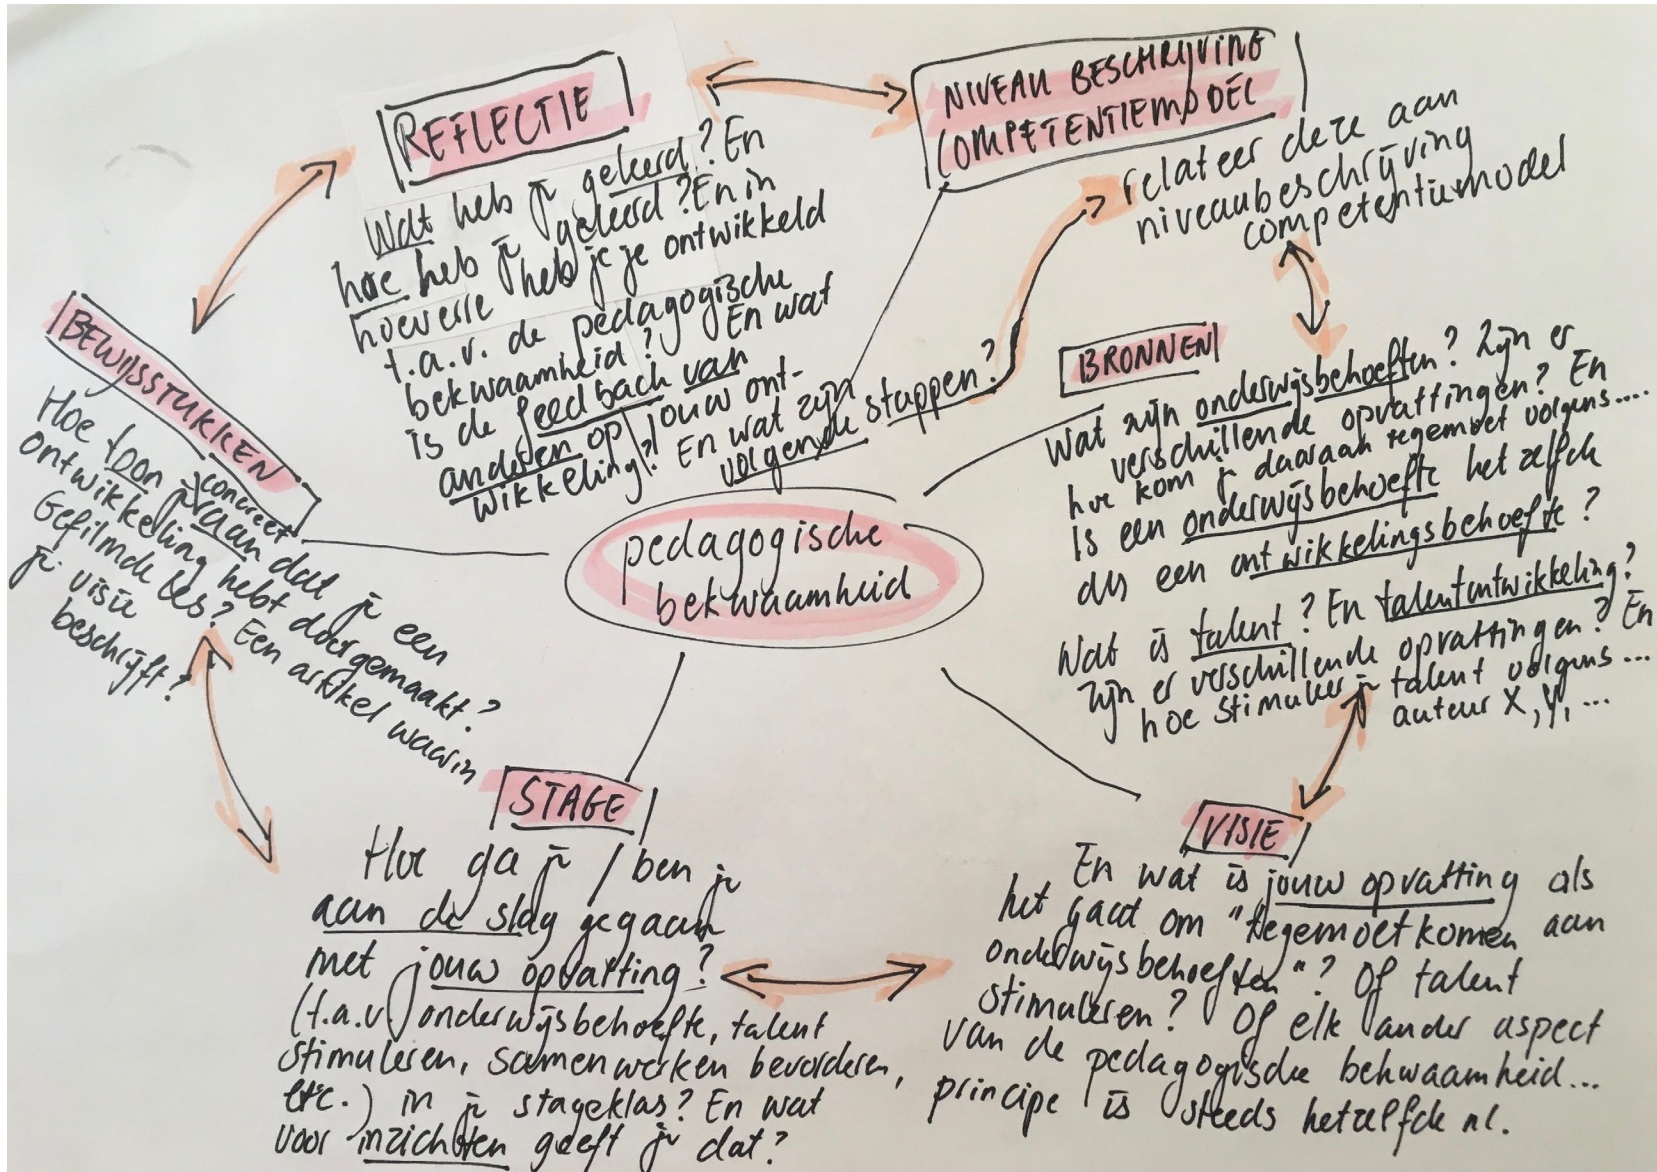 REFLECTIE
Wat heb je geleerd? En
hoe heb je geleerd? En in
hoeverre heb je je ontwikkeld
t.a.v. de pedagogische
bekwaamheid? En wat
is de feedback van
anderen op jouw ont-
wikkeling? En wat zijn
volgende stappen?
NIVEAU BESCHRIJVING
COMPETENTIEMODEL
relateer deze aan
niveaubeschrijving
competentiemodel
BRONNEN
Wat zijn onderwijsbehoeften? Zijn er
verschillende opvattingen? En
hoe kom je daaraan tegemoet volgens....
Is een onderwijsbehoefte het zelfde
als een ontwikkelingsbehoefte?
Wat is talent? En talentontwikkeling?
Zijn er verschillende opvattingen? En
hoe stimuleer je talent volgens...
auteur X, Y, ...
BEWIJSSTUKKEN
Hoe toon je concreet aan dat je een
ontwikkeling hebt doorgemaakt?
Gefilmde les? Een artikel waarin
je visie
beschrijft?
pedagogische
bekwaamheid
STAGE
Hoe ga je / ben je
aan de slag gegaan
met jouw opvatting?
(t.a.v. onderwijsbehoefte, talent
stimuleren, samenwerken bevorderen,
etc.) in je stageklas? En wat
voor inzichten geeft je dat?
VISIE
En wat is jouw opvatting als
het gaat om "tegemoetkomen aan
onderwijsbehoeften"? Of talent
stimuleren? Of elk ander aspect
van de pedagogische bekwaamheid...
principe is steeds hetzelfde nl.